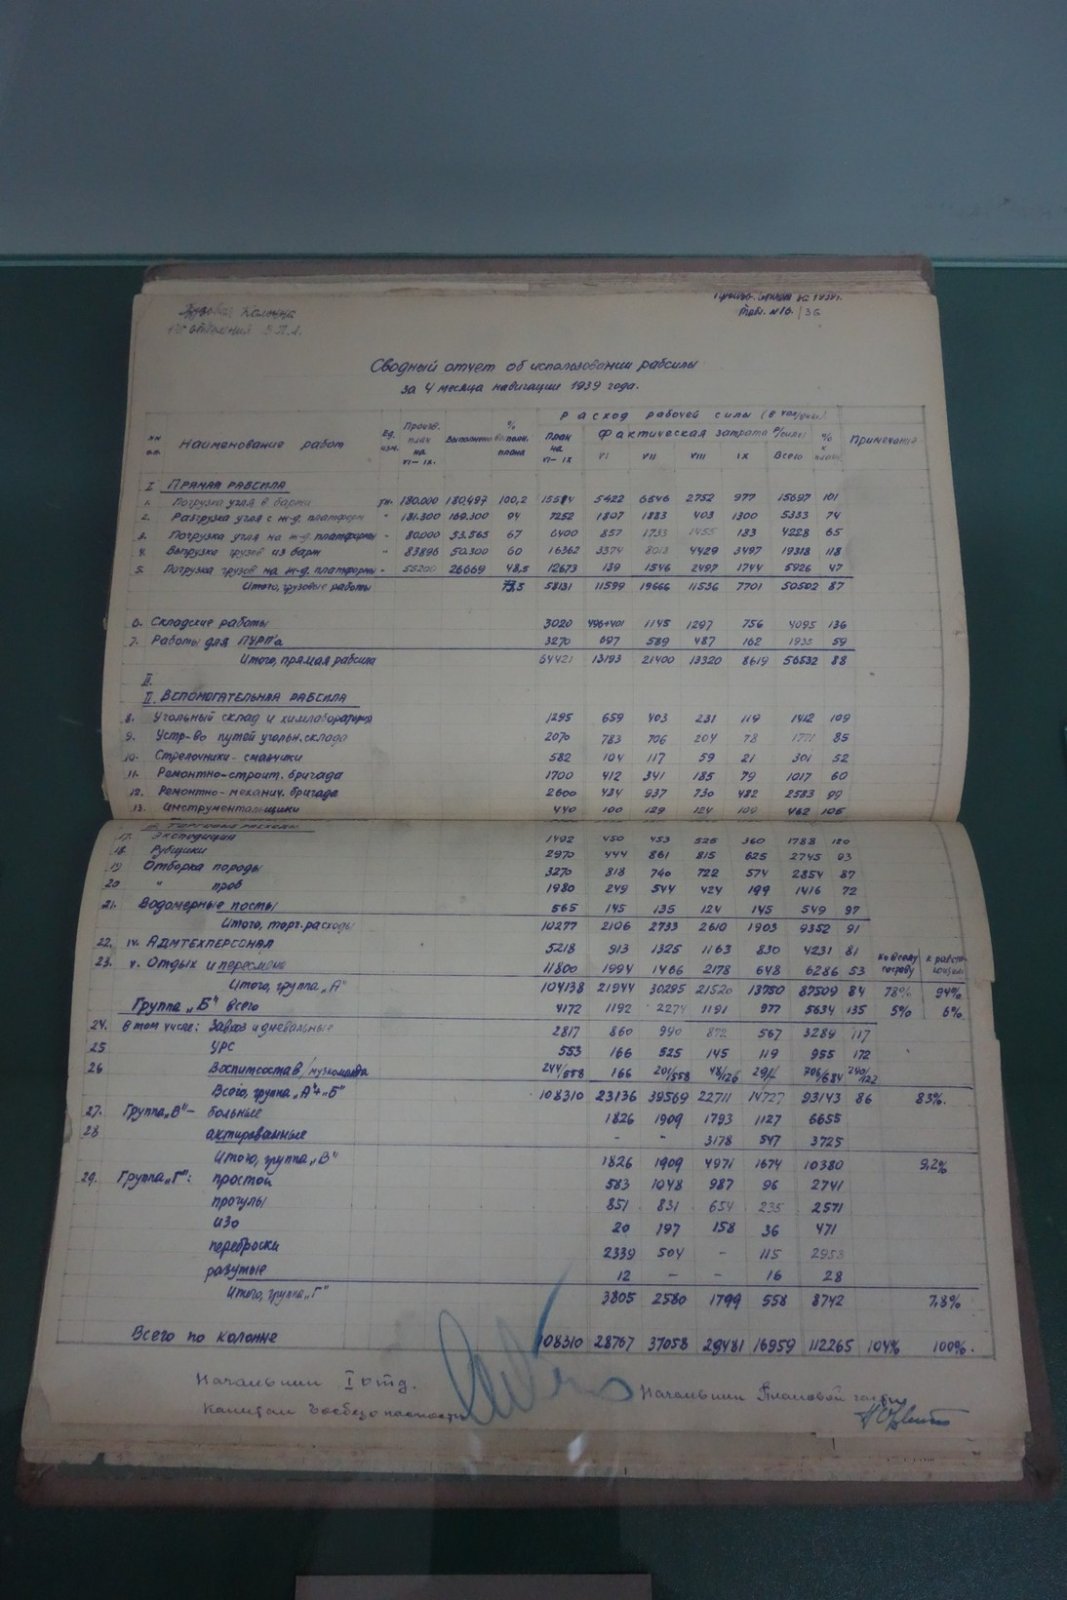 Грузовая Колонна
1го отделения В.П.Л.
Произв. отчет за 1939г.
Табл. №16. /36
Сводный отчет об использовании рабсилы
за 4 месяца навигации 1939 года.
Расход рабочей силы (в чел/днях)
Наименование работ Ед. изм. Произв. план на VI–IX. Выполнено % выполн. плана План на VI–IX Фактическая затрата р/силы % к плану Примечание
VI VII VIII IX Всего
I. Прямая рабсила
1. Погрузка угля в баржи тн. 180.000 180.497 100,2 15584 5422 6546 2752 977 15697 101
2. Разгрузка угля с ж-д. платформ " 181.300 169.300 94 7252 1807 1823 403 1300 5333 74
3. Погрузка угля на ж-д. платформы " 80.000 53.565 67 6400 857 1733 1455 183 4228 65
4. Выгрузка грузов из барж " 83896 50.300 60 16362 3374 8018 4429 3497 19318 118
5. Погрузка грузов на ж-д. платформы " 55200 26669 48,5 12673 139 1546 2497 1744 5926 47
Итого, грузовые работы 73,5 58131 11599 19666 11536 7701 50502 87
6. Складские работы 3020 496+401 1145 1297 756 4095 136
7. Работы для ПУРП'а 3270 697 589 487 162 1935 59
Итого, прямая рабсила 64421 13193 21400 13320 8619 56532 88
II.
II. Вспомогательная рабсила
8. Угольный склад и химлаборатория 1295 659 403 231 119 1412 109
9. Устр-во путей угольн. склада 2070 783 706 204 78 1771 85
10. Стрелочники-смазчики 582 104 117 59 21 301 52
11. Ремонтно-строит. бригада 1700 412 341 185 79 1017 60
12. Ремонтно-механич. бригада 2600 434 937 730 482 2583 99
13. Инструментальщики 440 100 129 124 109 462 105
III. Торговые расходы
17. Экспедиция 1492 450 453 525 360 1788 120
18. Рубщики 2970 444 861 815 625 2745 93
19 Отборка породы 3270 818 740 722 574 2854 87
20 " проб 1980 249 544 424 199 1416 72
21. Водомерные посты 565 145 135 124 145 549 97
Итого, торг. расходы 10277 2106 2733 2610 1903 9352 91
22. IV. Адмтехперсонал 5218 913 1325 1163 830 4231 81
23. V. Отдых и пересмена 11800 1994 1466 2178 648 6286 53 ко всему составу к работающим
Итого, группа „А" 104138 21944 30295 21520 13750 87509 84 78% 94%
Группа „Б" всего 4172 1192 2274 1191 977 5634 135 5% 6%
24. В том числе: Завхоз и дневальные 2817 860 990 872 567 3289 117
25 УРС 553 166 525 145 119 955 172
26 Воспитсостав/музкоманда 244/558 166 201/558 48/126 706/684 240/122
Всего, группа „А"+„Б" 108310 23136 39569 22711 14727 93143 86 83%.
27. Группа „В" – больные 1826 1909 1793 1127 6655
28 актированные - - 3178 547 3725
Итого, группа „В" 1826 1909 4971 1674 10380 9,2%
29. Группа „Г": простой 583 1048 987 96 2741
прогулы 851 831 654 235 2571
изо 20 197 158 36 471
переброски 2339 504 – 115 2958
разутые 12 – – 16 28
Итого, группа „Г" 3805 2580 1799 558 8742 7,8%
Всего по колонне 108310 28767 37058 29481 16959 112265 104% 100%.
Начальник I отд.
Капитан Госбезопасности
Начальник Плановой части